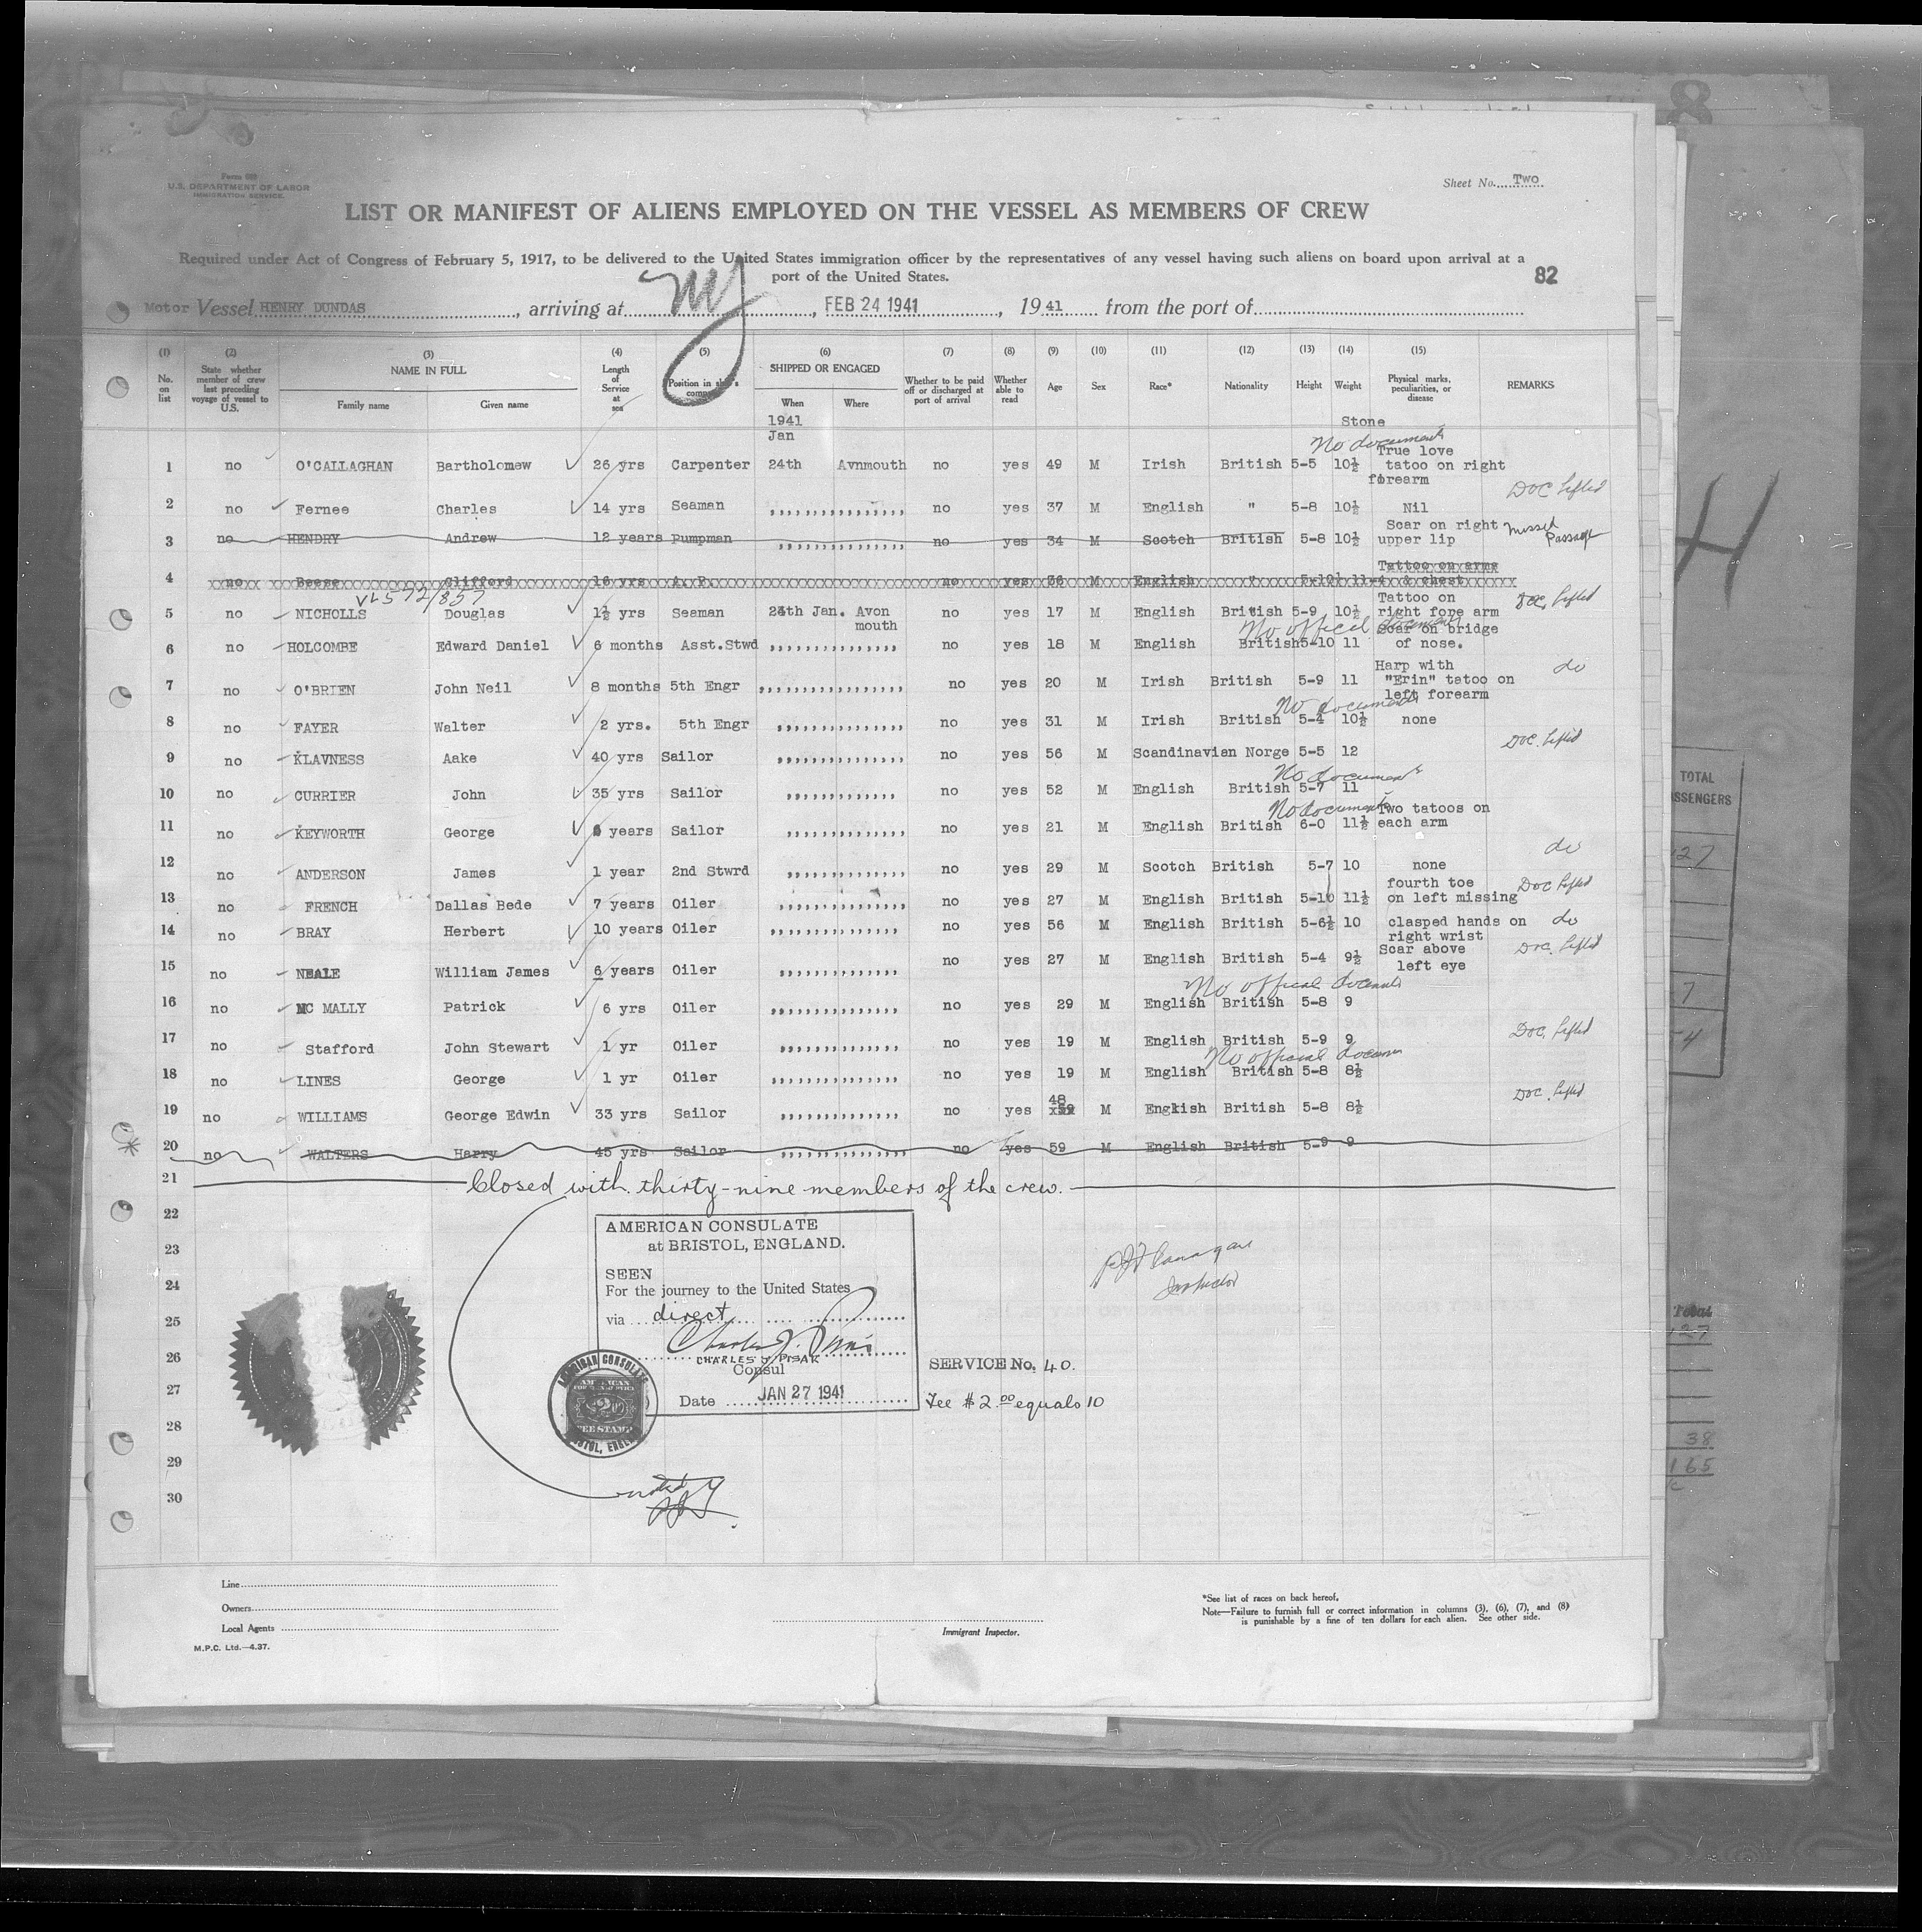 Form 689
U.S. DEPARTMENT OF LABOR
IMMIGRATION SERVICE.
Sheet No. Two
LIST OR MANIFEST OF ALIENS EMPLOYED ON THE VESSEL AS MEMBERS OF CREW
Required under Act of Congress of February 5, 1917, to be delivered to the United States immigration officer by the representatives of any vessel having such aliens on board upon arrival at a
port of the United States.
82
Motor Vessel HENRY DUNDAS, arriving at NY, FEB 24 1941, 1941 from the port of
(1) (2) (3) (4) (5) (6) (7) (8) (9) (10) (11) (12) (13) (14) (15)
No. on list
State whether member of crew last preceding voyage of vessel to U.S.
NAME IN FULL
Family name Given name
Length of Service at sea
Position in ship's company
SHIPPED OR ENGAGED
When Where
Whether to be paid off or discharged at port of arrival
Whether able to read
Age Sex Race* Nationality Height Weight
Physical marks, peculiarities, or disease
REMARKS
1941
Jan
Stone
No document
1 no O'CALLAGHAN Bartholomew 26 yrs Carpenter 24th Avnmouth no yes 49 M Irish British 5-5 10½ True love tatoo on right forearm
2 no Fernee Charles 14 yrs Seaman ,,,,,,,,,,,,,,, no yes 37 M English " 5-8 10½ Nil Doc Lifted
3 no HENDRY Andrew 12 years Pumpman ,,,,,,,,,,,,,,, no yes 34 M Scotch British 5-8 10½ Scar on right upper lip Missed Passage
4 no Beese Clifford 16 yrs A. B. no yes 36 M English " 5-10½ 11-4 Tattoo on arms & chest
VL572/857
5 no NICHOLLS Douglas 1½ yrs Seaman 24th Jan. Avon mouth no yes 17 M English British 5-9 10½ Tattoo on right fore arm Doc. Lifted
No offical document
6 no HOLCOMBE Edward Daniel 6 months Asst.Stwd ,,,,,,,,,,,,,,, no yes 18 M English British 5-10 11 Scar on bridge of nose.
7 no O'BRIEN John Neil 8 months 5th Engr ,,,,,,,,,,,,,,, no yes 20 M Irish British 5-9 11 Harp with "Erin" tatoo on left forearm do
No document
8 no FAYER Walter 2 yrs. 5th Engr ,,,,,,,,,,,,,,, no yes 31 M Irish British 5-4 10½ none
9 no KLAVNESS Aake 40 yrs Sailor ,,,,,,,,,,,,,,, no yes 56 M Scandinavian Norge 5-5 12 Doc. Lifted
No document
10 no CURRIER John 35 yrs Sailor ,,,,,,,,,,,,,,, no yes 52 M English British 5-7 11
No document
11 no KEYWORTH George years Sailor ,,,,,,,,,,,,,,, no yes 21 M English British 6-0 11½ Two tatoos on each arm
12 no ANDERSON James 1 year 2nd Stwrd ,,,,,,,,,,,,,,, no yes 29 M Scotch British 5-7 10 none do
13 no FRENCH Dallas Bede 7 years Oiler ,,,,,,,,,,,,,,, no yes 27 M English British 5-10 11½ fourth toe on left missing Doc Lifted
14 no BRAY Herbert 10 years Oiler ,,,,,,,,,,,,,,, no yes 56 M English British 5-6½ 10 clasped hands on right wrist do
15 no NEALE William James 6 years Oiler ,,,,,,,,,,,,,,, no yes 27 M English British 5-4 9½ Scar above left eye Doc. Lifted
No offical document
16 no MC MALLY Patrick 6 yrs Oiler ,,,,,,,,,,,,,,, no yes 29 M English British 5-8 9
17 no Stafford John Stewart 1 yr Oiler ,,,,,,,,,,,,,,, no yes 19 M English British 5-9 9 Doc. Lifted
No official docum
18 no LINES George 1 yr Oiler ,,,,,,,,,,,,,,, no yes 19 M English British 5-8 8½
19 no WILLIAMS George Edwin 33 yrs Sailor ,,,,,,,,,,,,,,, no yes 48 M English British 5-8 8½ Doc. Lifted
20 no WALTERS Harry 45 yrs Sailor ,,,,,,,,,,,,,,, no yes 59 M English British 5-9 9
21 Closed with thirty-nine members of the crew.
22
23
24
25
26
27
28
29
30
AMERICAN CONSULATE
at BRISTOL, ENGLAND.
SEEN
For the journey to the United States
via direct
CHARLES J. PISAR
Consul
Date JAN 27 1941
SERVICE No. 40.
Fee $2.00 equals 10
PJ Flanagan
Inspector
AMERICAN CONSULATE
BRISTOL, ENGLAND
AMERICAN
FEE STAMP
noted
Line
Owners
Local Agents
M.P.C. Ltd.—4.37.
Immigrant Inspector.
*See list of races on back hereof.
Note—Failure to furnish full or correct information in columns (3), (6), (7), and (8)
is punishable by a fine of ten dollars for each alien. See other side.
8
H
TOTAL
PASSENGERS
127
7
Total
127
38
165